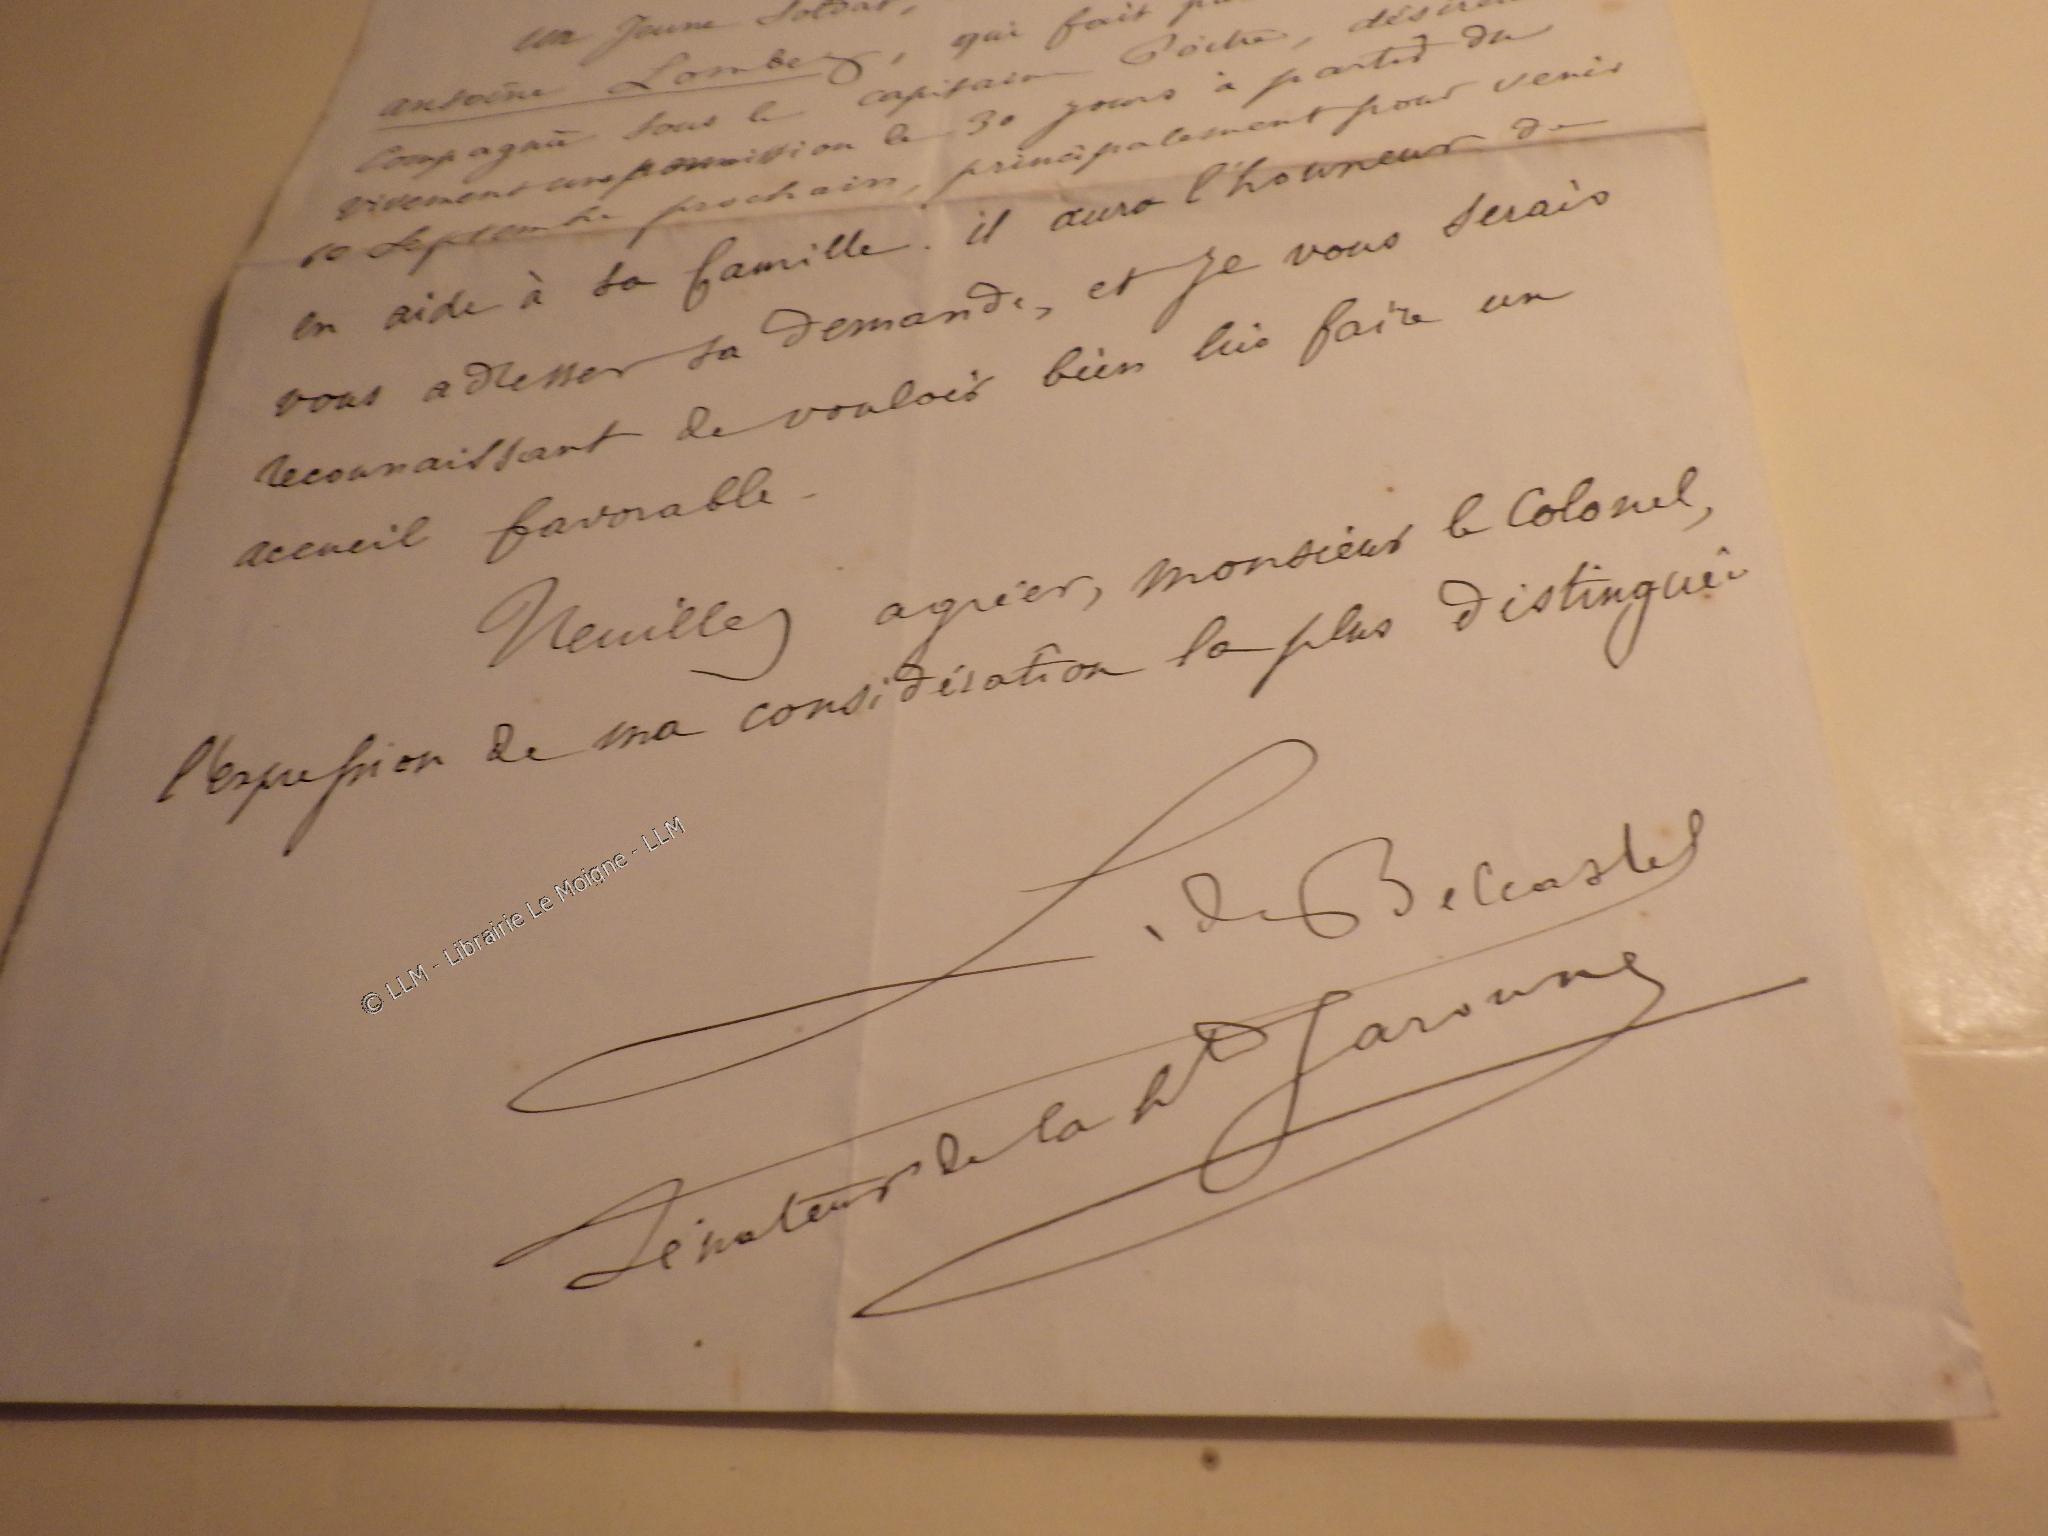 un jeune soldat,
antoine Lombez, qui fait
Compagnie sous le capitaine
vivement une permission de 30 jours à partir du
10 Septembre prochain, principalement pour venir
en aide à sa famille. il aura l'honneur de
vous adresser sa demande, et je vous serais
reconnaissant de vouloir bien lui faire un
accueil favorable.
Veuillez agréer, monsieur le Colonel,
l'expression de ma considération la plus distinguée
de Belcastel
Sénateur de la hte Garonne
© LLM - Librairie Le Moigne - LLM